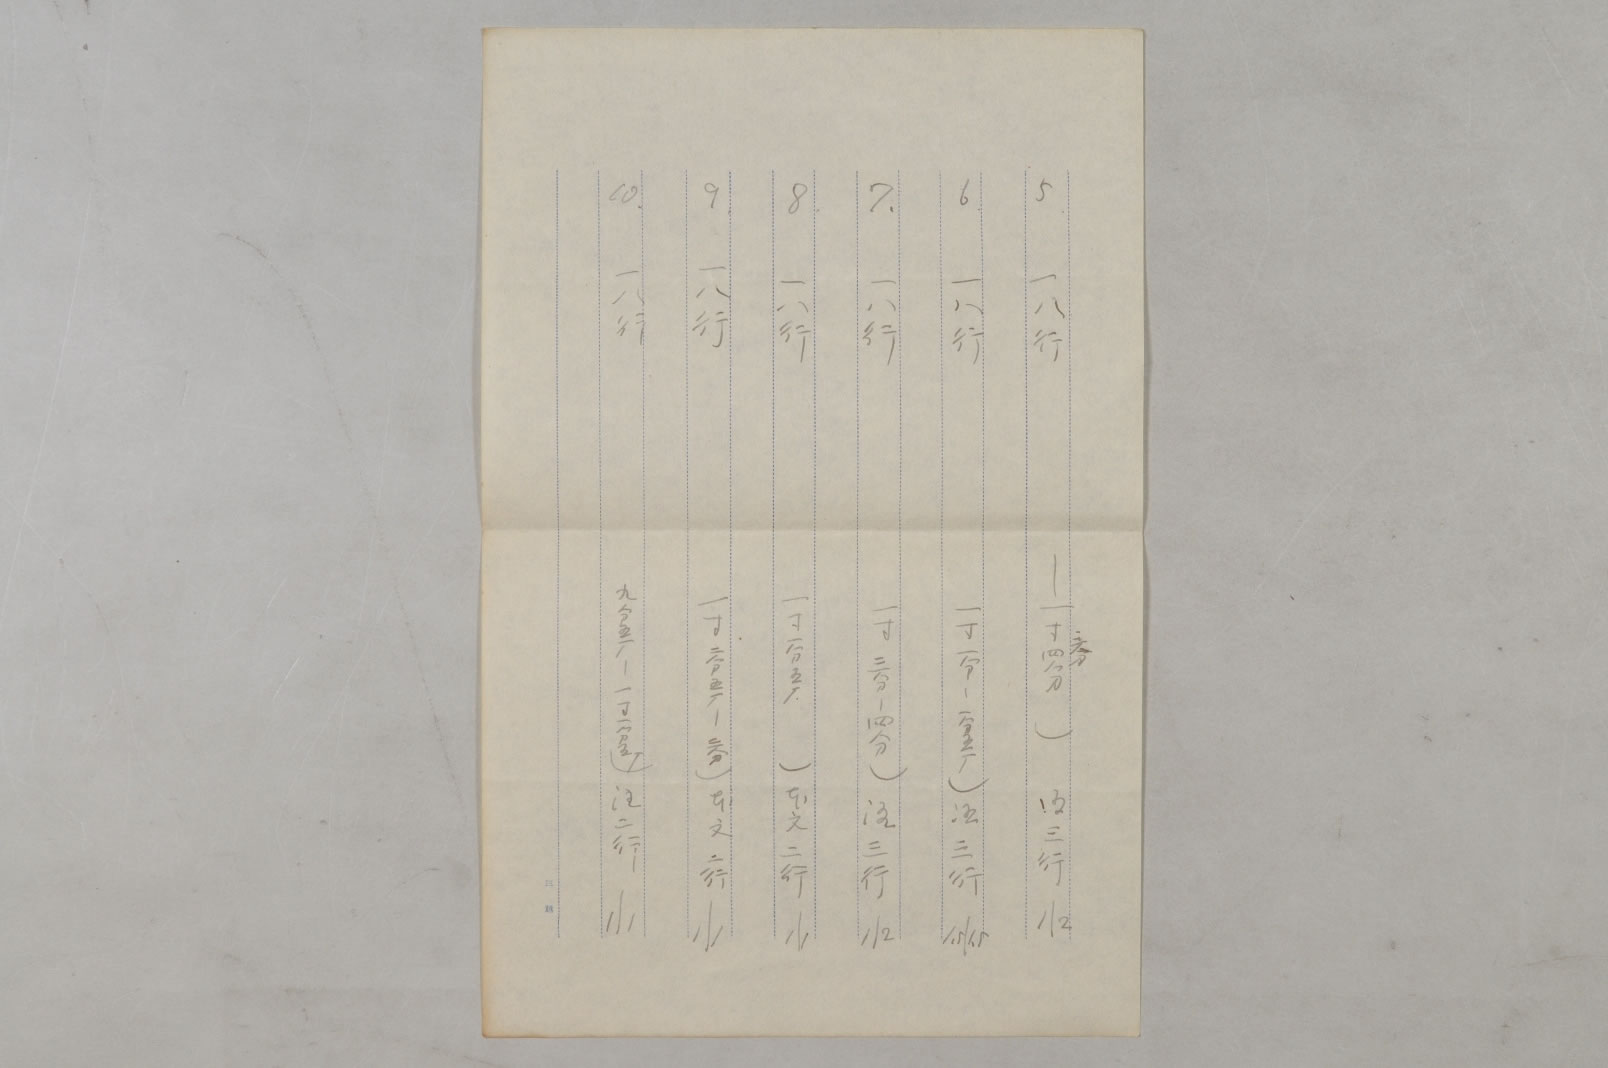 5. 一八行 ー一寸四分) 注三行 1/2
三分
6. 一八行 一寸一分ー一分五厂) 注三行 1.5/1.5
7. 一八行 一寸三分ー四分) 注三行 1/2
8. 一八行 一寸一分五厂) 本文二行 1/1
9. 一八行 一寸二分五厂ー三分) 本文二行 1/1
10. 一八行 九分五厂ー一寸一分五厂) 注二行 1/1